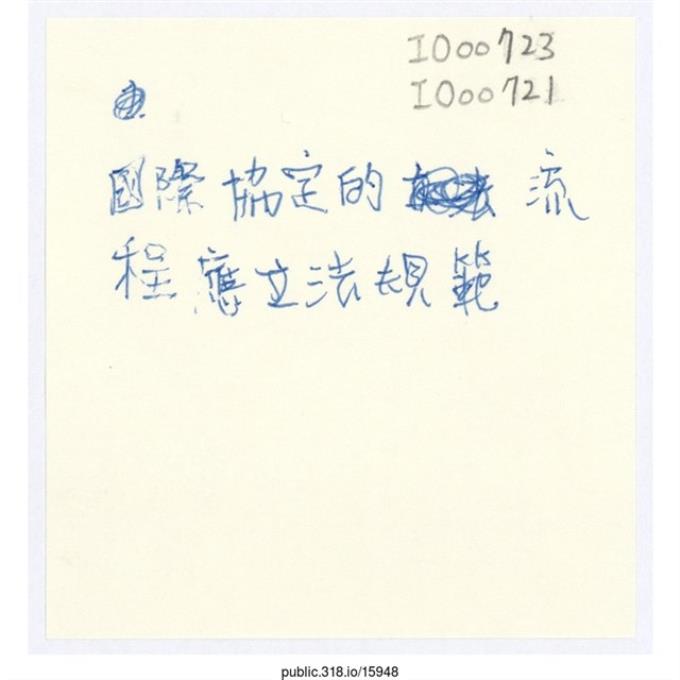 I000723
I000721
國際協定的 流
程應立法規範
public.318.io/15948